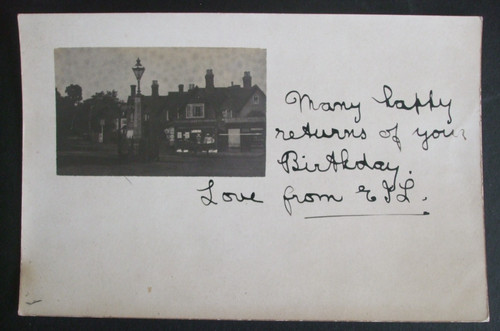 Many happy
returns of your
Birthday.
Love from E J L.